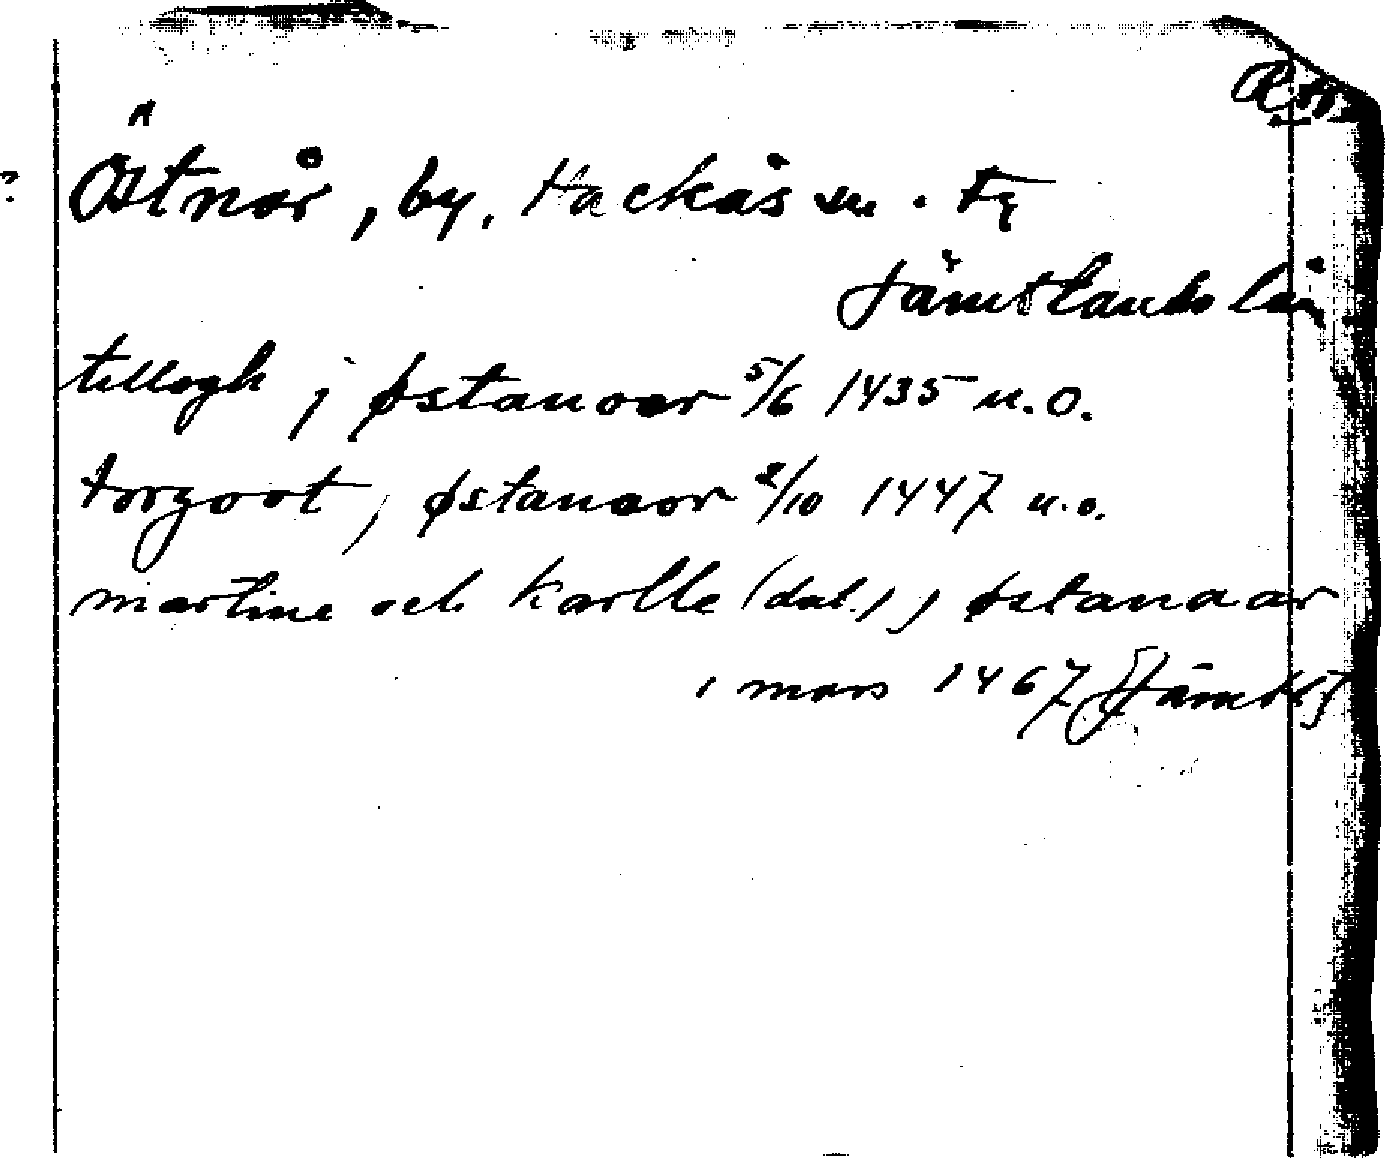 Östnår, by, Hackås sn.
Jämtlands län
tillogh j østanoor 5/6 1435 u.o.
torgoot j østanoor 2/10 1447 u.o.
martine och karlle (dat.) j østanaar
1 mars 1467